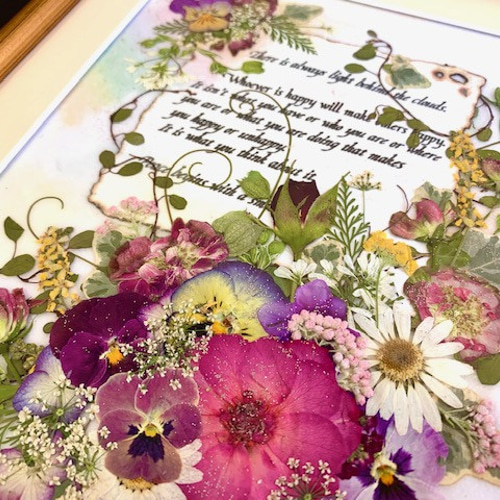 There is always light behind the clouds.
Whoever is happy will make others happy.
It isn't what you have or who you are or where
you are or what you are doing that makes
you happy or unhappy.
It is what you think about it.
Peace begins with a